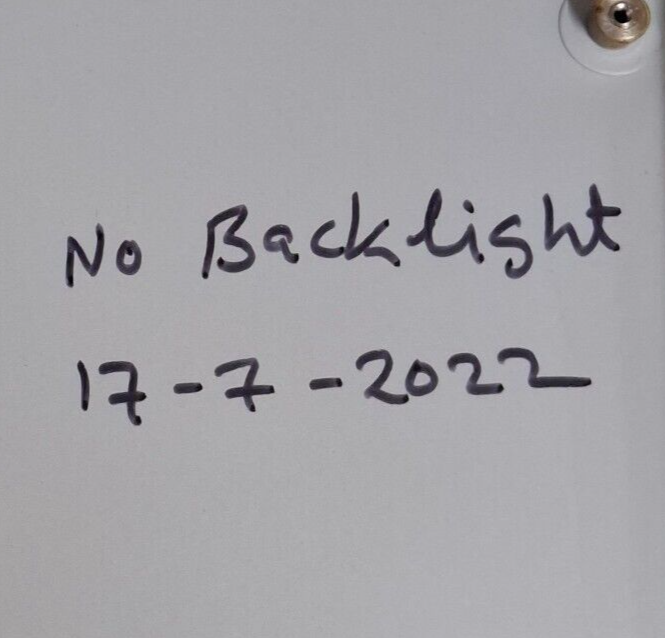 No Backlight
17-7-2022